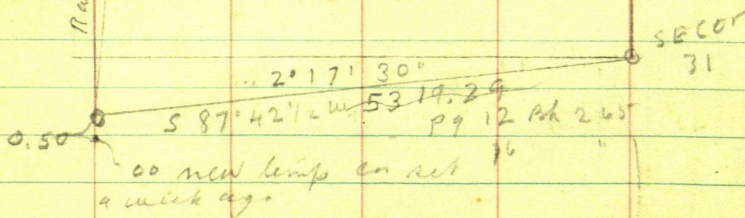 Ra
SE COR
31
2° 17' 30"
S 87° 42 1/2 W 5319.29
Pg 12 Bk 265
16 "
0.50
00 new temp cor set
a week ago